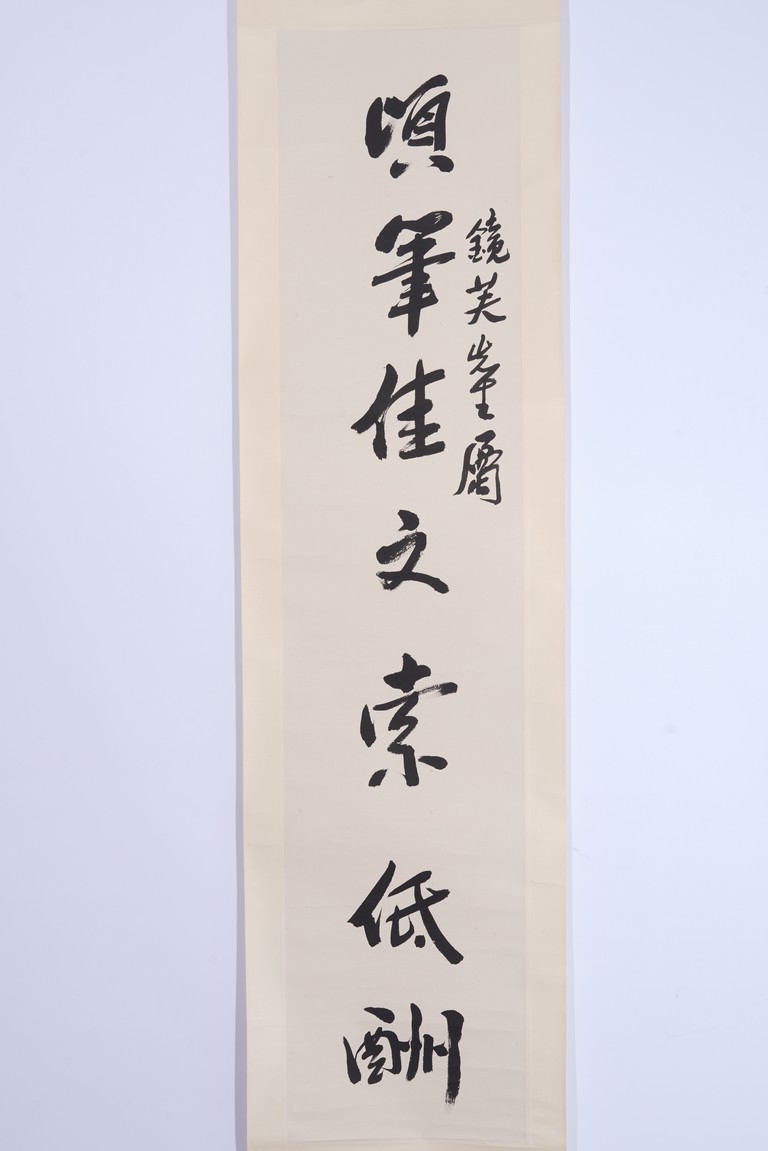 鏡芙先生屬
頃筆佳文索低酬